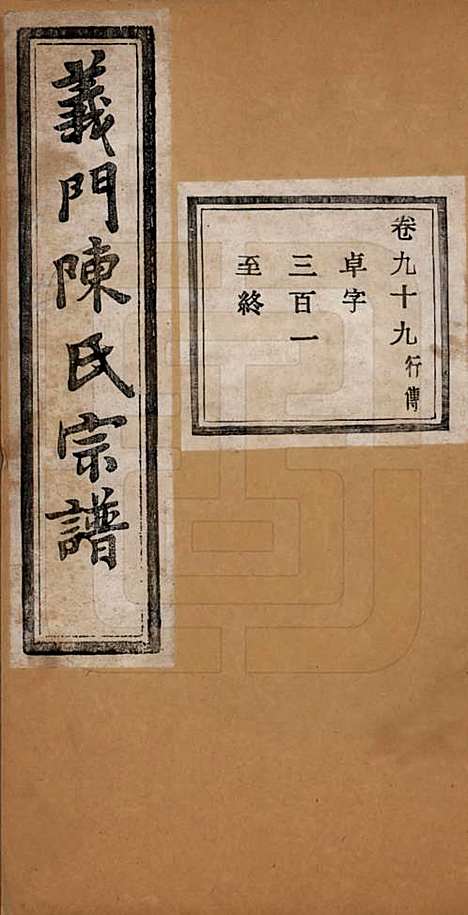 義門陳氏宗譜
卷九十九行傳
卓字
三百一
至終